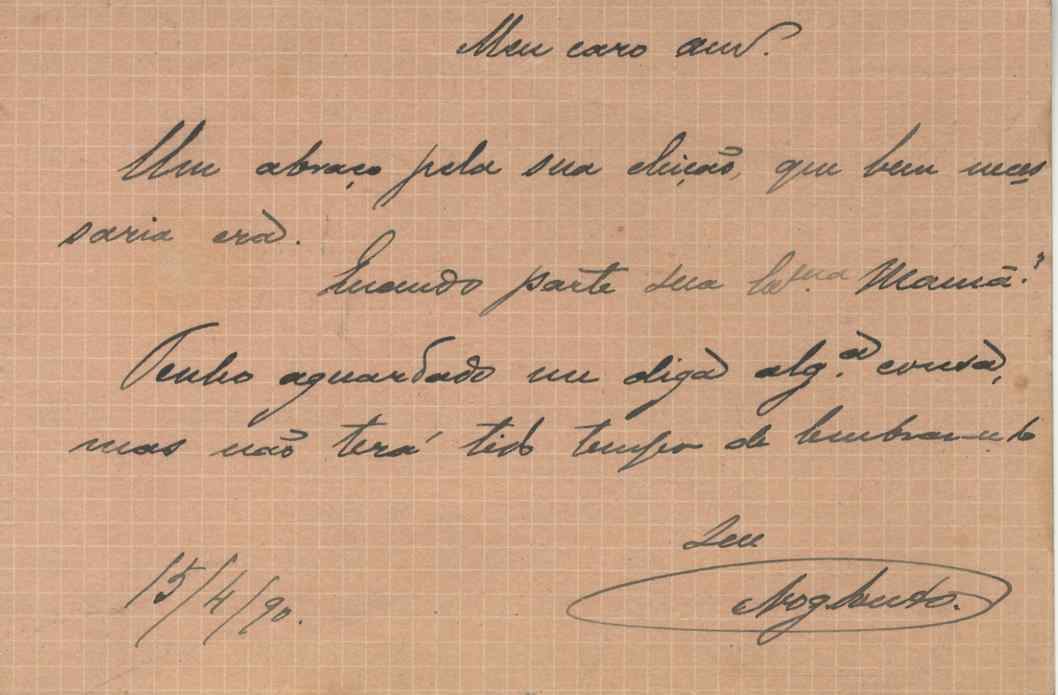 Meu caro am.º
Um abraço pela sua eleição, que bem neces
saria era.
Quando parte sua Ex.ma Mamã?
Tenho aguardado me diga alg.a cousa,
mas não terá tido tempo de lembrar-se do
Seu
15/4/90.